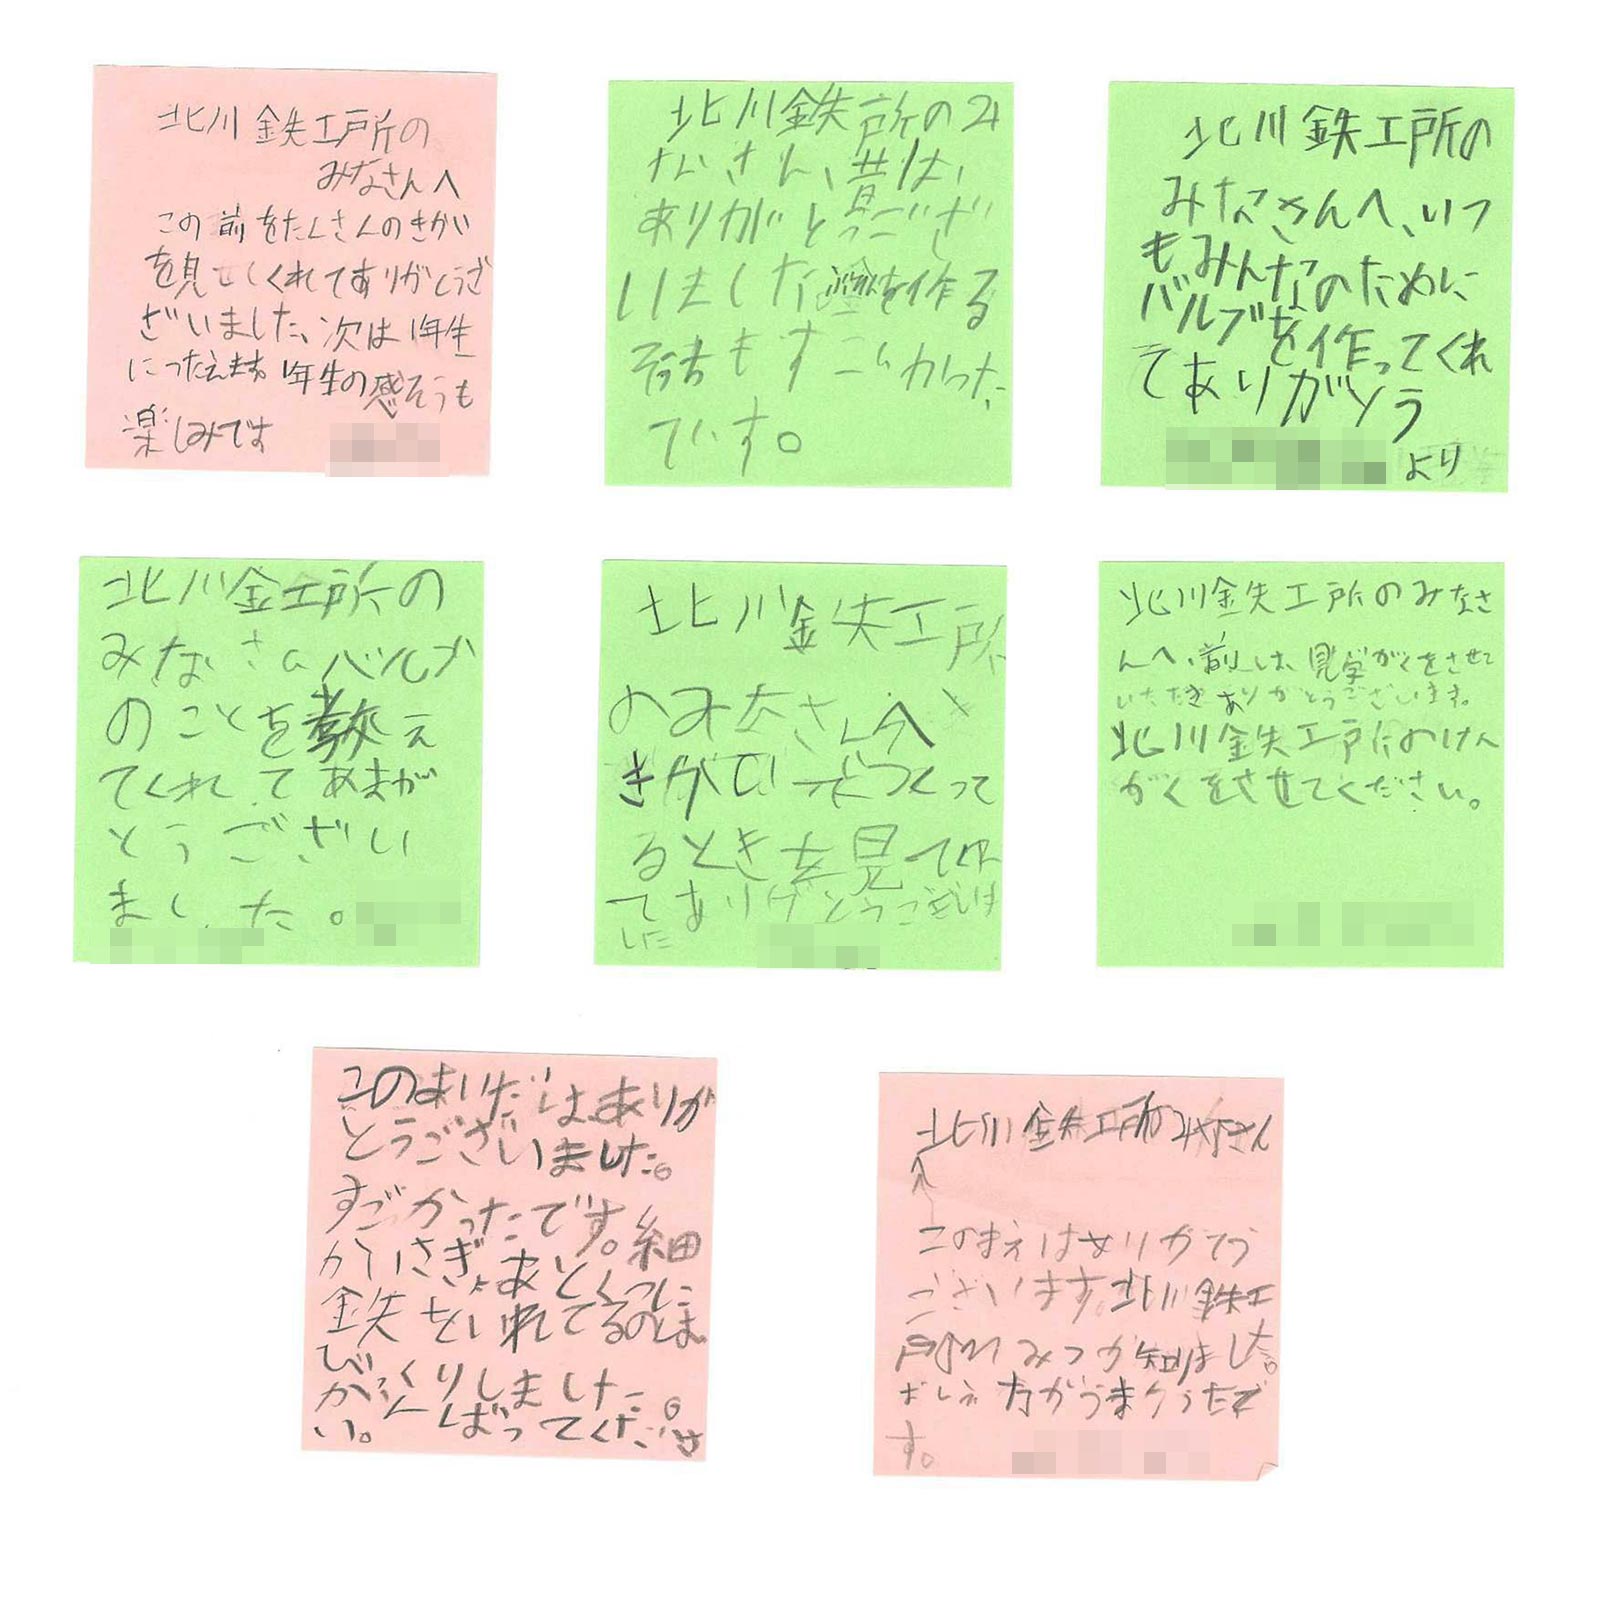 北川鉄工所の
みなさんへ
この前をたくさんのきかい
を見せてくれてありがとうござ
ざいました、次は1年生
につたえます1年生の感そうも
楽しみです
北川鉄所のみ
なさん、昔は、
ありがとうござ
いました を作る
もすごいかった
です。
北川鉄工所の
みなさんへ、いつ
もみんなのために
バルブを作ってくれ
てありがとう
より
北川金工所の
みなさんバルブ
のことを教え
てくれてあまが
とうござい
ました。
北川鉄工所
のみなさんへ
きかい つくって
るときを見
てありがとうございま
した
北川鉄工所のみなさ
んへ、前は、見学がくをさせて
いただきありがとうございます。
北川鉄工所のけん
がくをさせてください。
このまいだは、ありが
とうございました。
すごかったです。細
かいさぎょあとくつに
鉄をいれてるのとは
びっくりしました。
がんばってくださ
い。
北川鉄工所のみなさん
このまえはありがとう
ございます。北川鉄工
みつか知りました。
おしえ方がうまかったで
す。